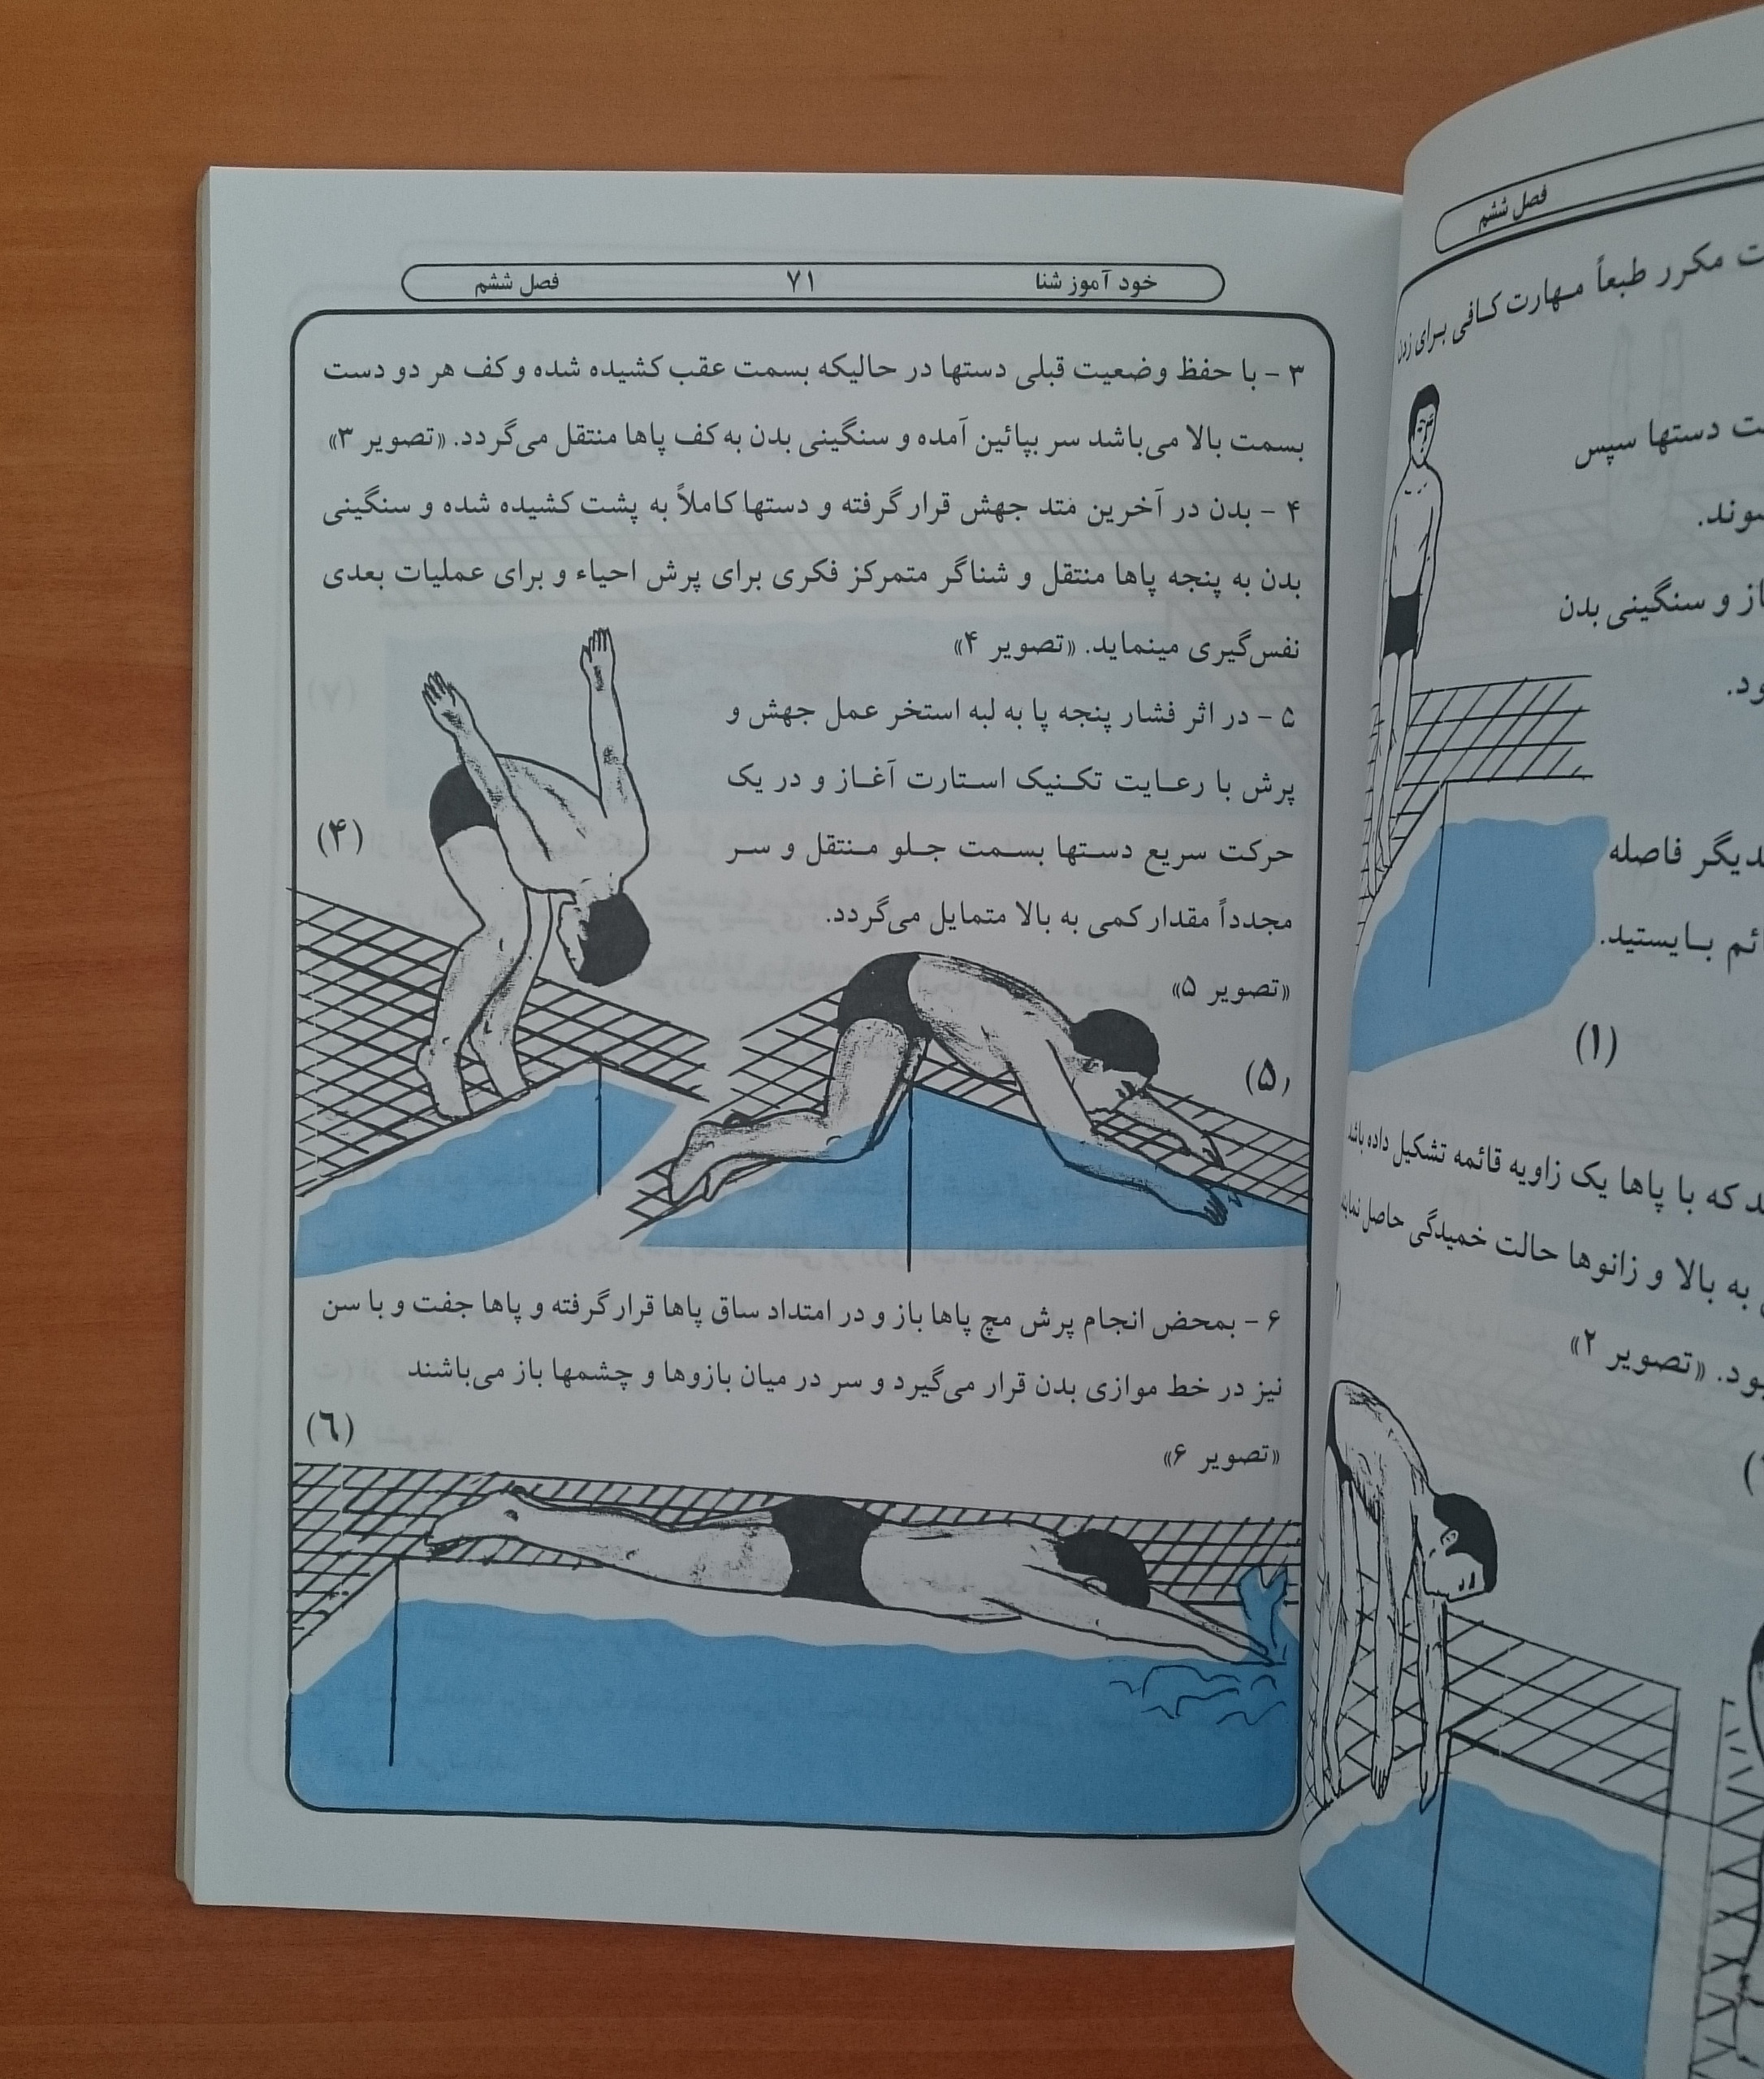 خود آموز شنا ۷۱ فصل ششم
۳ - با حفظ وضعیت قبلی دستها در حالیکه بسمت عقب کشیده شده و کف هر دو دست
بسمت بالا می‌باشد سر بپائین آمده و سنگینی بدن به کف پاها منتقل می‌گردد. «تصویر ۳»
۴ - بدن در آخرین مَتد جهش قرار گرفته و دستها کاملاً به پشت کشیده شده و سنگینی
بدن به پنجه پاها منتقل و شناگر متمرکز فکری برای پرش احیاء و برای عملیات بعدی
نفس‌گیری مینماید. «تصویر ۴»
۵ - در اثر فشار پنجه پا به لبه استخر عمل جهش و
پرش با رعایت تکنیک استارت آغاز و در یک
حرکت سریع دستها بسمت جلو منتقل و سر
مجدداً مقدار کمی به بالا متمایل می‌گردد.
«تصویر ۵»
(۴)
(۵)
۶ - بمحض انجام پرش مچ پاها باز و در امتداد ساق پاها قرار گرفته و پاها جفت و با سن
نیز در خط موازی بدن قرار می‌گیرد و سر در میان بازوها و چشمها باز می‌باشند
«تصویر ۶»
(٦)
فصل ششم
مکرر طبعاً مهارت کافی برای زدن
دستها سپس
و سنگینی بدن
فاصله
بایستید.
(۱)
که با پاها یک زاویه قائمه تشکیل داده باشد
به بالا و زانوها حالت خمیدگی حاصل نماید
«تصویر ۲»